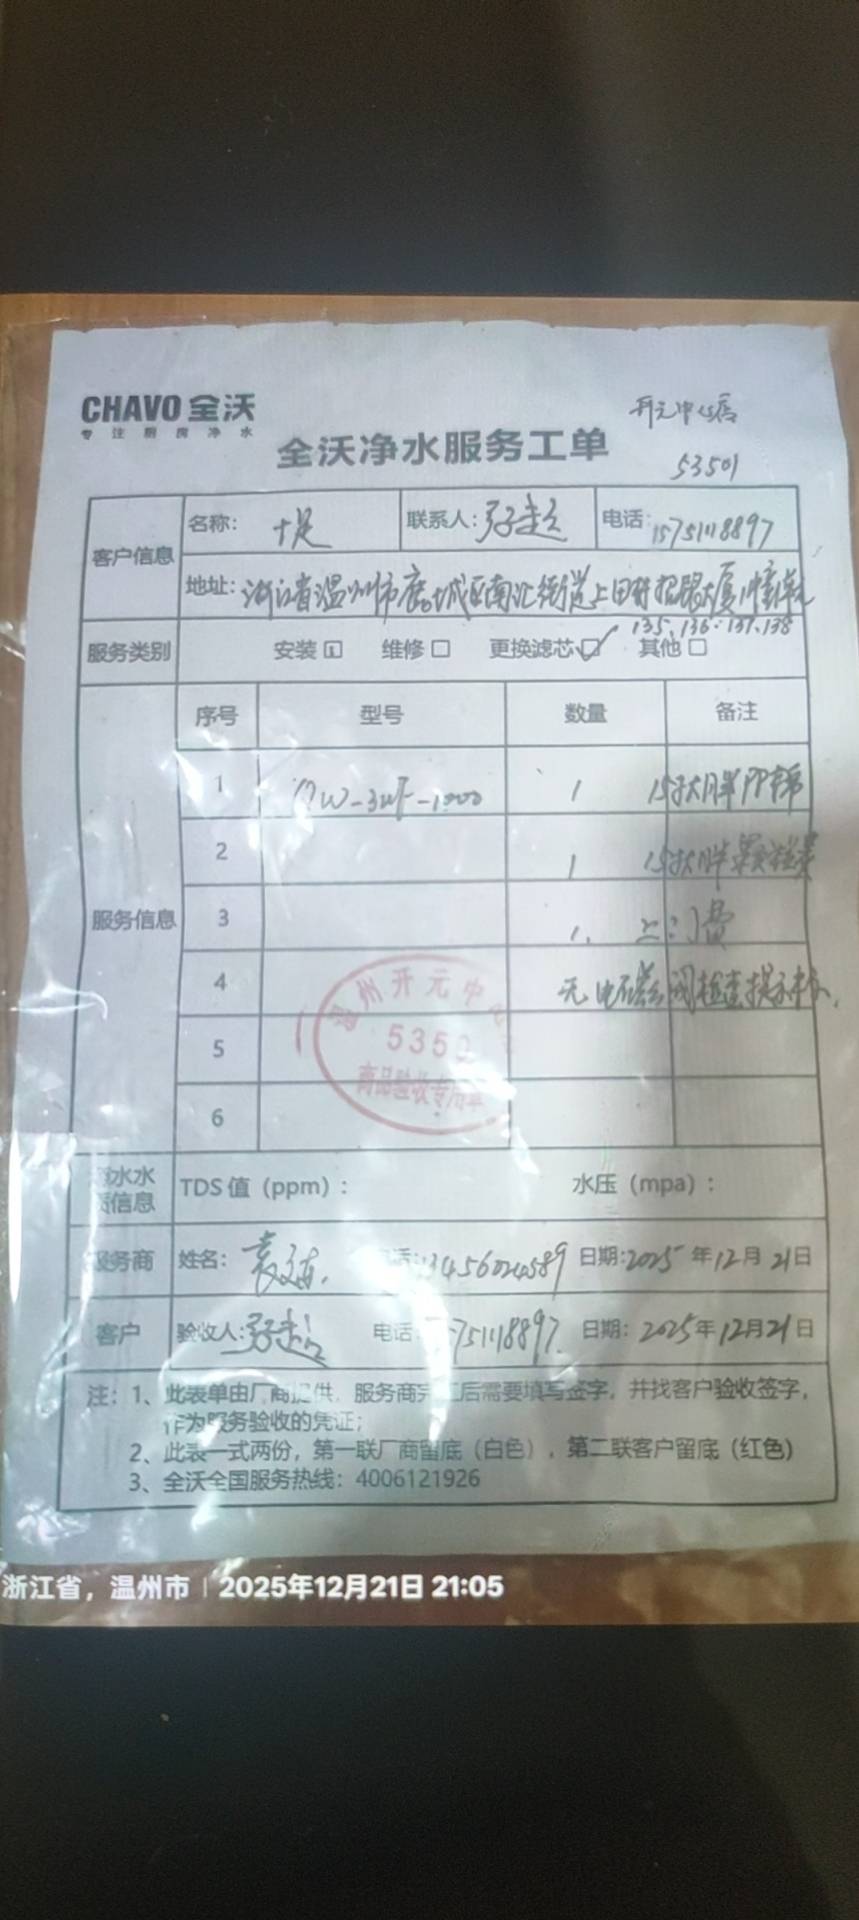 CHAVO 全沃
专注厨房净水
开元中心店
53501
全沃净水服务工单
客户信息 名称: 联系人: 电话: 15751118897
地址: 浙江省温州市鹿城区南汇街道上田村招银大厦
135、136、137、138
服务类别 安装 维修 更换滤芯 其他
服务信息 序号 型号 数量 备注
1 1
2 1
3 1. 上门费
4 无电磁阀检查
5
6
水水 TDS 值 (ppm): 水压 (mpa):
信息
服务商 姓名: 13456024589 日期: 2025年12月21日
客户 验收人: 电话 751118897 日期: 2025年12月21日
注: 1、此表单由厂商提供, 服务商完工后需要填写签字, 并找客户验收签字,
作为服务验收的凭证;
2、此表一式两份, 第一联厂商留底 (白色), 第二联客户留底 (红色)
3、全沃全国服务热线: 4006121926
温州开元中心
商品验收专用章
浙江省, 温州市 | 2025年12月21日 21:05